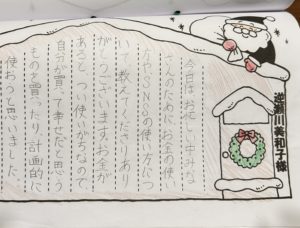 今日は、お忙しい中みな
さんのためにお金の使い
方やSNSの使い方につ
いて教えてくださりあり
がとうございます。お金が
あると、つい使いがちなので
自分が買って幸せだと思う
ものを買ったり、計画的に
使おうと思いました。
逆瀬川美和子様